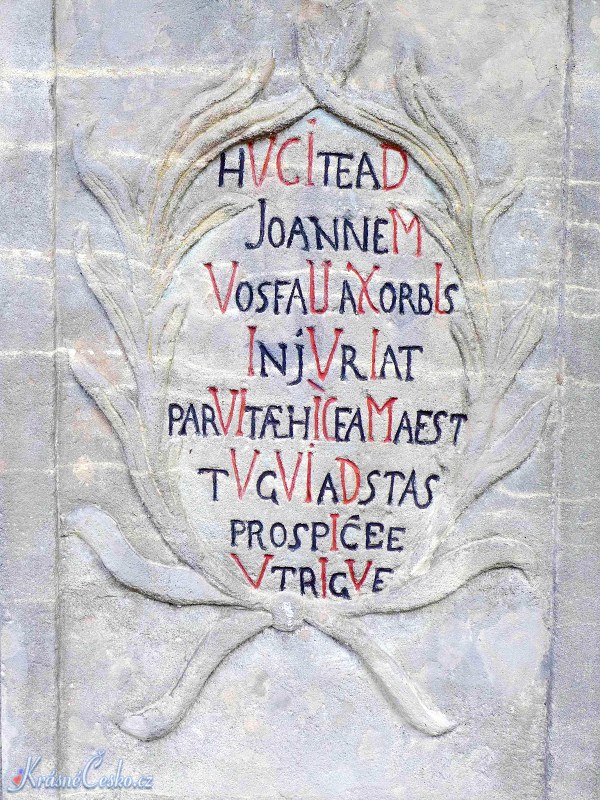 HVCİTEAD
JOANNEM
VOSFAUAXORBIS
INJVRIAT
PARVITÆHÌCEAMAEST
TVGVİADSTAS
PROSPIĊEE
VTRIGVE
KrásnéČesko.cz